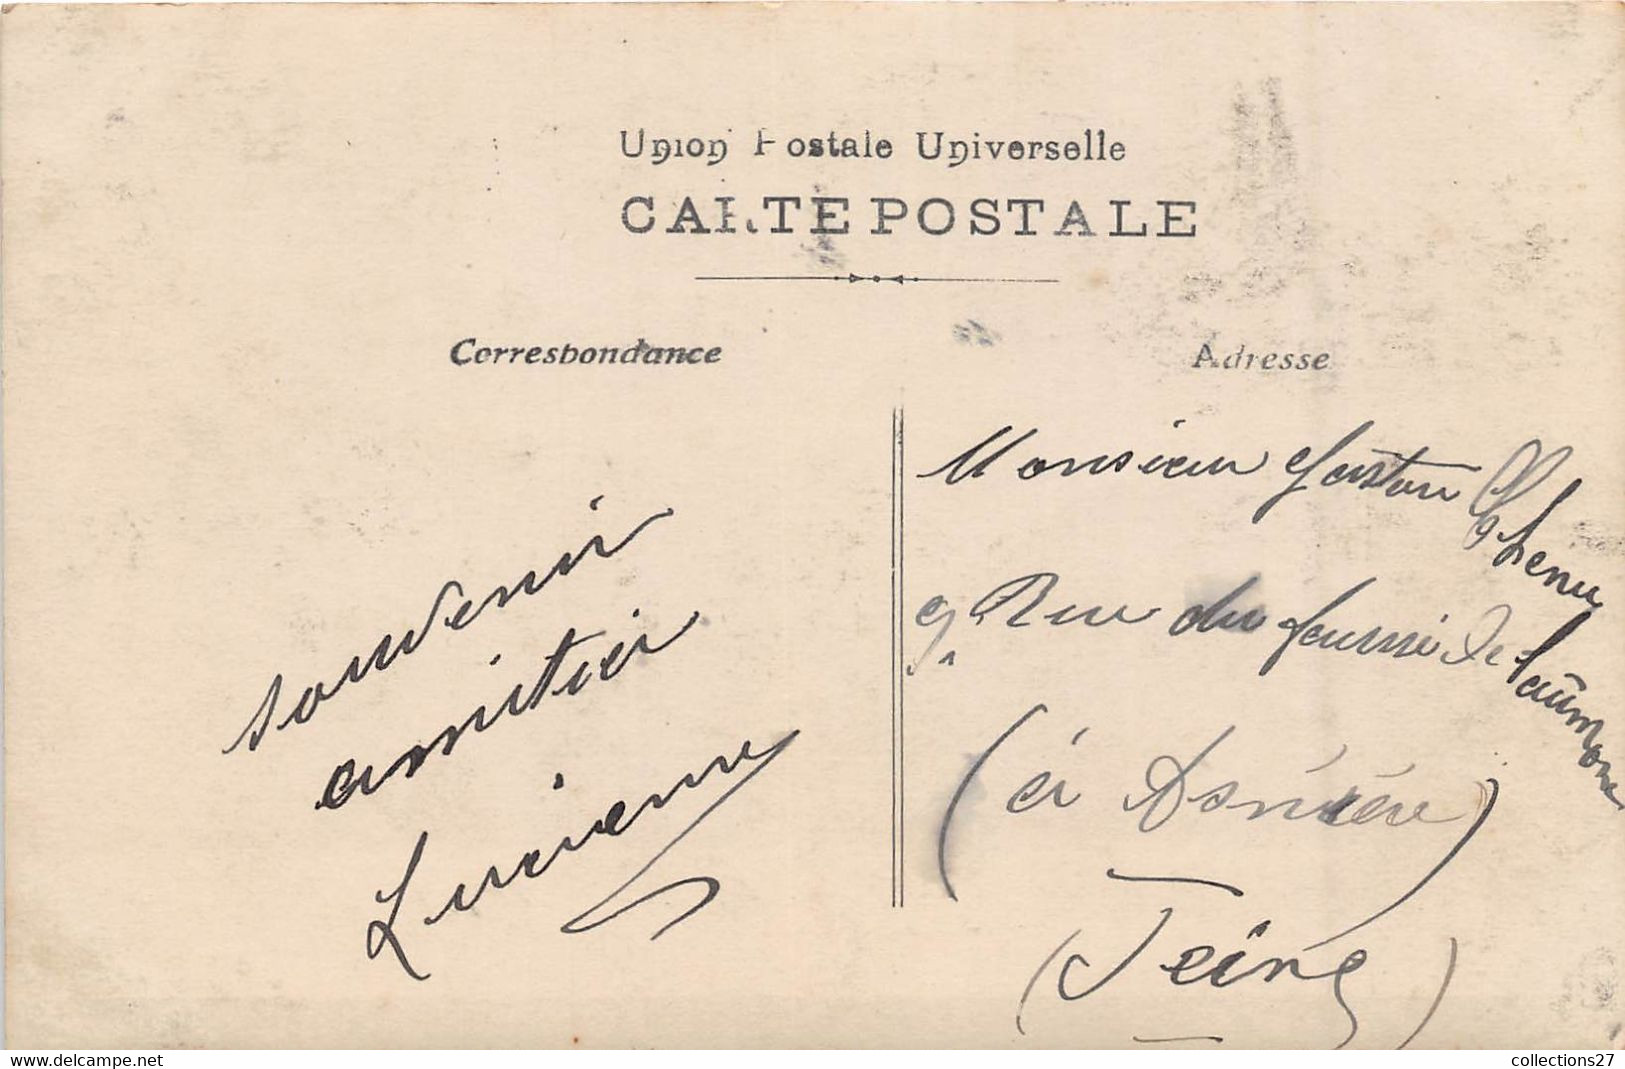 Union Postale Universelle
CARTE POSTALE
Correspondance
Adresse
souvenir
amitier
Lucienne
Monsieur Gaston Chenu
9 Rue du
(à Asniéie)
(Seine)
delcampe.net
collections27